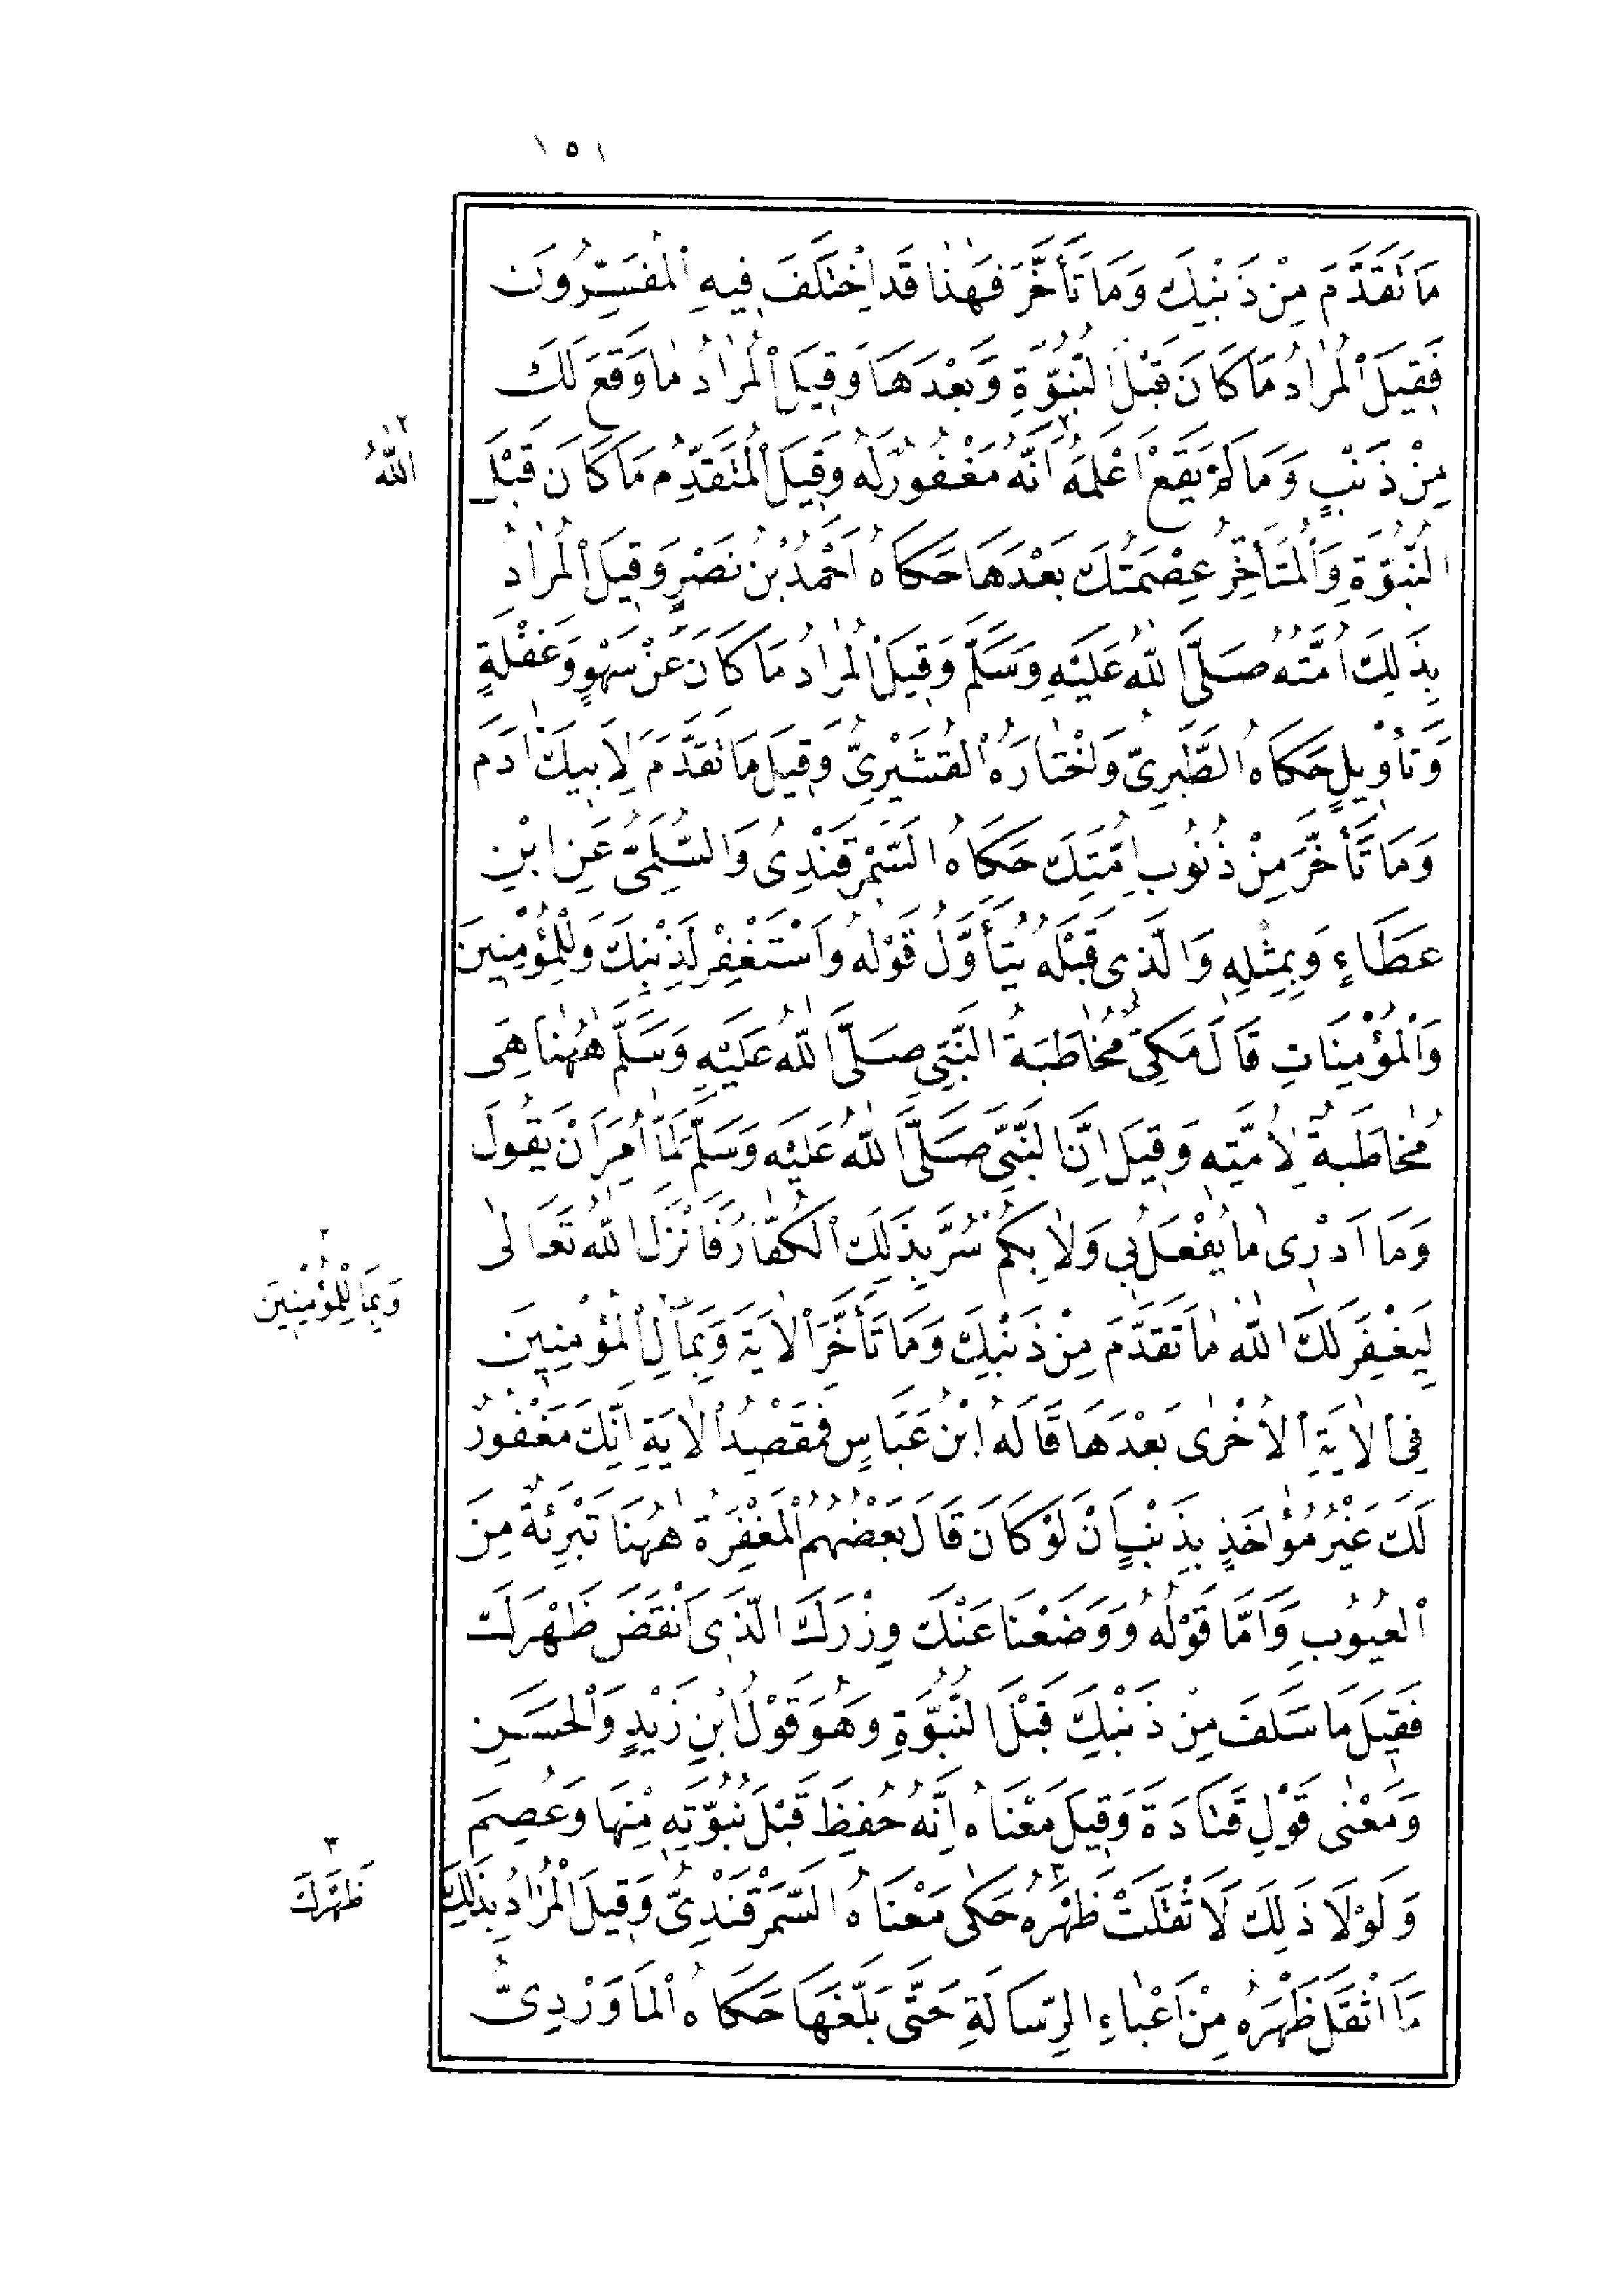 ١٥١
مَا تَقَدَّمَ مِنْ ذَنْبِكَ وَمَا تَأَخَّرَ فَهٰذَا قَدِ اخْتَلَفَ فِيهِ الْمُفَسِّرُونَ
فَقِيلَ الْمُرَادُ مَا كَانَ قَبْلَ النُّبُوَّةِ وَبَعْدَهَا وَقِيلَ الْمُرَادُ مَا وَقَعَ لَكَ
مِنْ ذَنْبٍ وَمَا لَمْ يَقَعْ اَعْلَمَهُ ٢ اَنَّهُ مَغْفُورٌ لَهُ وَقِيلَ الْمُتَقَدِّمُ مَا كَانَ قَبْلَ
النُّبُوَّةِ وَالْمُتَأَخِّرُ عِصْمَتُكَ بَعْدَهَا حَكَاهُ اَحْمَدُ بْنُ نَصْرٍ وَقِيلَ الْمُرَادُ
بِذَلِكَ اُمَّتُهُ صَلَّى اللّٰهُ عَلَيْهِ وَسَلَّمَ وَقِيلَ الْمُرَادُ مَا كَانَ عَنْ سَهْوٍ وَغَفْلَةٍ
وَتَأْوِيلٍ حَكَاهُ الطَّبَرِىُّ وَاخْتَارَهُ الْقُشَيْرِىُّ وَقِيلَ مَا تَقَدَّمَ لِاَبِيكَ اٰدَمَ
وَمَا تَأَخَّرَ مِنْ ذُنُوبِ اُمَّتِكَ حَكَاهُ السَّمَرْقَنْدِىُّ وَالسُّلَمِىُّ عَنِ ابْنِ
عَطَاءٍ وَبِمِثْلِهِ وَالَّذِى قَبْلَهُ يُتَأَوَّلُ قَوْلُهُ وَاسْتَغْفِرْ لِذَنْبِكَ وَلِلْمُؤْمِنِينَ
وَالْمُؤْمِنَاتِ قَالَ مَكِّىٌّ مُخَاطَبَةُ النَّبِىِّ صَلَّى اللّٰهُ عَلَيْهِ وَسَلَّمَ هٰهُنَا هِىَ
مُخَاطَبَةٌ لِاُمَّتِهِ وَقِيلَ اِنَّ النَّبِىَّ صَلَّى اللّٰهُ عَلَيْهِ وَسَلَّمَ لَمَّا اُمِرَ اَنْ يَقُولَ
وَمَا اَدْرِى مَا يُفْعَلُ بِى وَلَا بِكُمْ سُرَّ بِذَلِكَ الْكُفَّارُ فَاَنْزَلَ اللّٰهُ تَعَالَى
لِيَغْفِرَ لَكَ اللّٰهُ مَا تَقَدَّمَ مِنْ ذَنْبِكَ وَمَا تَأَخَّرَ الْاٰيَةَ وَبِمَآلِ الْمُؤْمِنِينَ
فِى الْاٰيَةِ الْاُخْرٰى بَعْدَهَا قَالَهُ ابْنُ عَبَّاسٍ فَمَقْصِدُ الْاٰيَةِ اَنَّكَ مَغْفُورٌ
لَكَ غَيْرُ مُؤَاخَذٍ بِذَنْبٍ اَنْ لَوْ كَانَ قَالَ بَعْضُهُمُ الْمَغْفِرَةُ هٰهُنَا تَبْرِئَةٌ مِنَ
الْعُيُوبِ وَاَمَّا قَوْلُهُ وَوَضَعْنَا عَنْكَ وِزْرَكَ الَّذِى اَنْقَضَ ظَهْرَكَ
فَقِيلَ مَا سَلَفَ مِنْ ذَنْبِكَ قَبْلَ النُّبُوَّةِ وَهُوَ قَوْلُ ابْنِ زَيْدٍ وَالْحَسَنِ
وَمَعْنٰى قَوْلِ قَتَادَةَ وَقِيلَ مَعْنَاهُ اِنَّهُ حُفِظَ قَبْلَ نُبُوَّتِهِ مِنْهَا وَعُصِمَ
وَلَوْلَا ذَلِكَ لَاَثْقَلَتْ ظَهْرَهُ ٣ حَكٰى مَعْنَاهُ السَّمَرْقَنْدِىُّ وَقِيلَ الْمُرَادُ بِذَلِكَ
مَا اَثْقَلَ ظَهْرَهُ مِنْ اَعْبَاءِ الرِّسَالَةِ حَتَّى بَلَّغَهَا حَكَاهُ الْمَاوَرْدِىُّ
٢
اللّٰهُ
٢
وَبِمَا لِلْمُؤْمِنِينَ
٣
ظَهْرَكَ